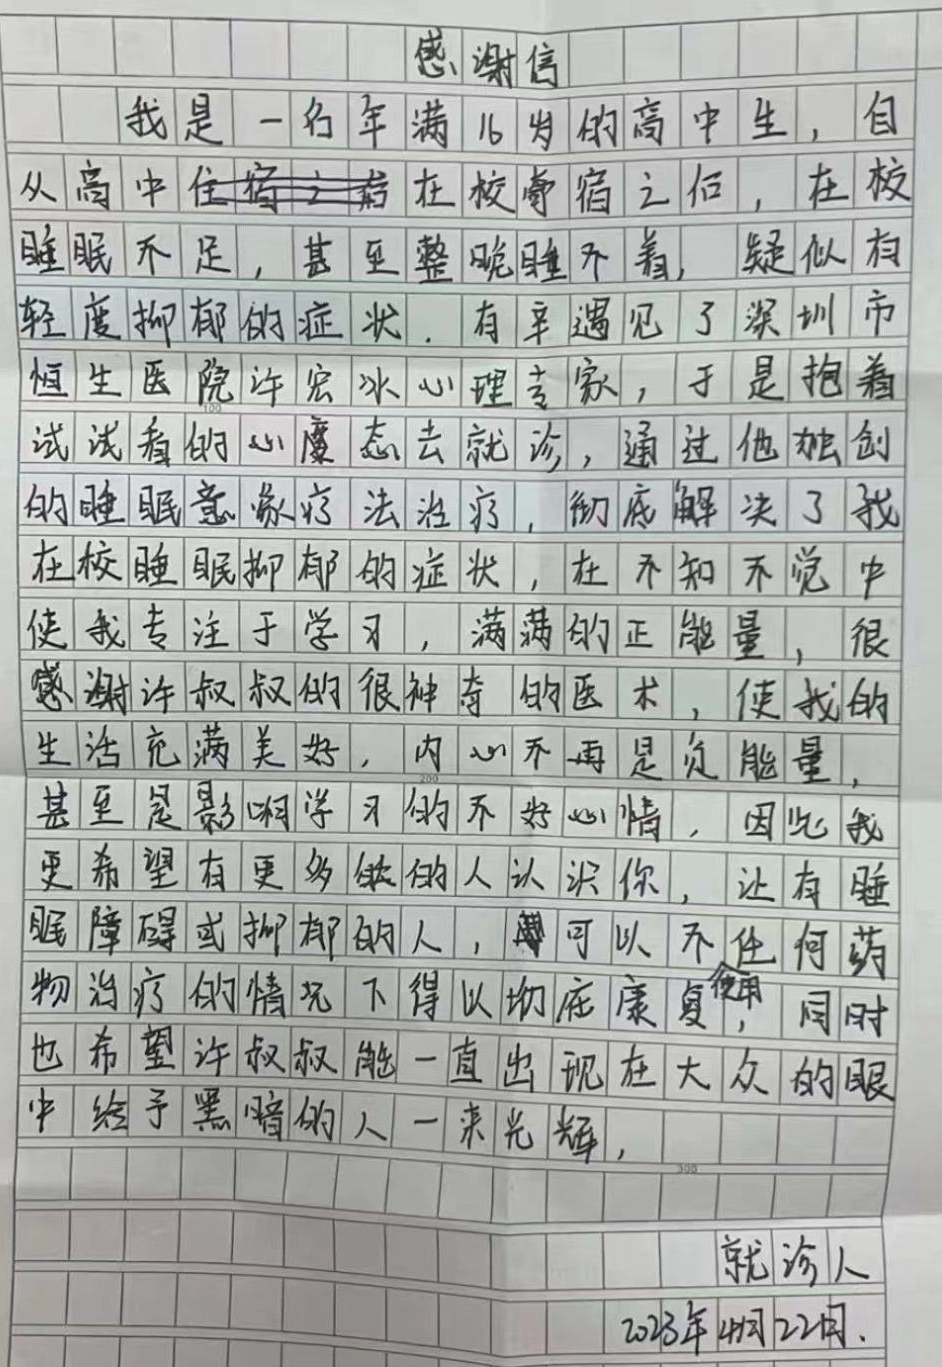 感谢信
我是一名年满16岁的高中生，自
从高中在校寄宿之后，在校
睡眠不足，甚至整晚睡不着，疑似有
轻度抑郁的症状．有幸遇见了深圳市
恒生医院许宏冰心理专家，于是抱着
100
试试看的心态去就诊，通过他独创
的睡眠意象疗法治疗，彻底解决了我
在校睡眠抑郁的症状，在不知不觉中
使我专注于学习，满满的正能量，很
感谢许叔叔的很神奇的医术，使我的
生活充满美好，内心不再是负能量，
200
甚至是影响学习的不好心情，因此我
更希望有更多的人认识你，让有睡
眠障碍或抑郁的人，可以不使用任何药
物治疗的情况下得以彻底康复，同时
也希望许叔叔能一直出现在大众的眼
中给予黑暗的人一束光辉，
300
就诊人
2023年4月22日．